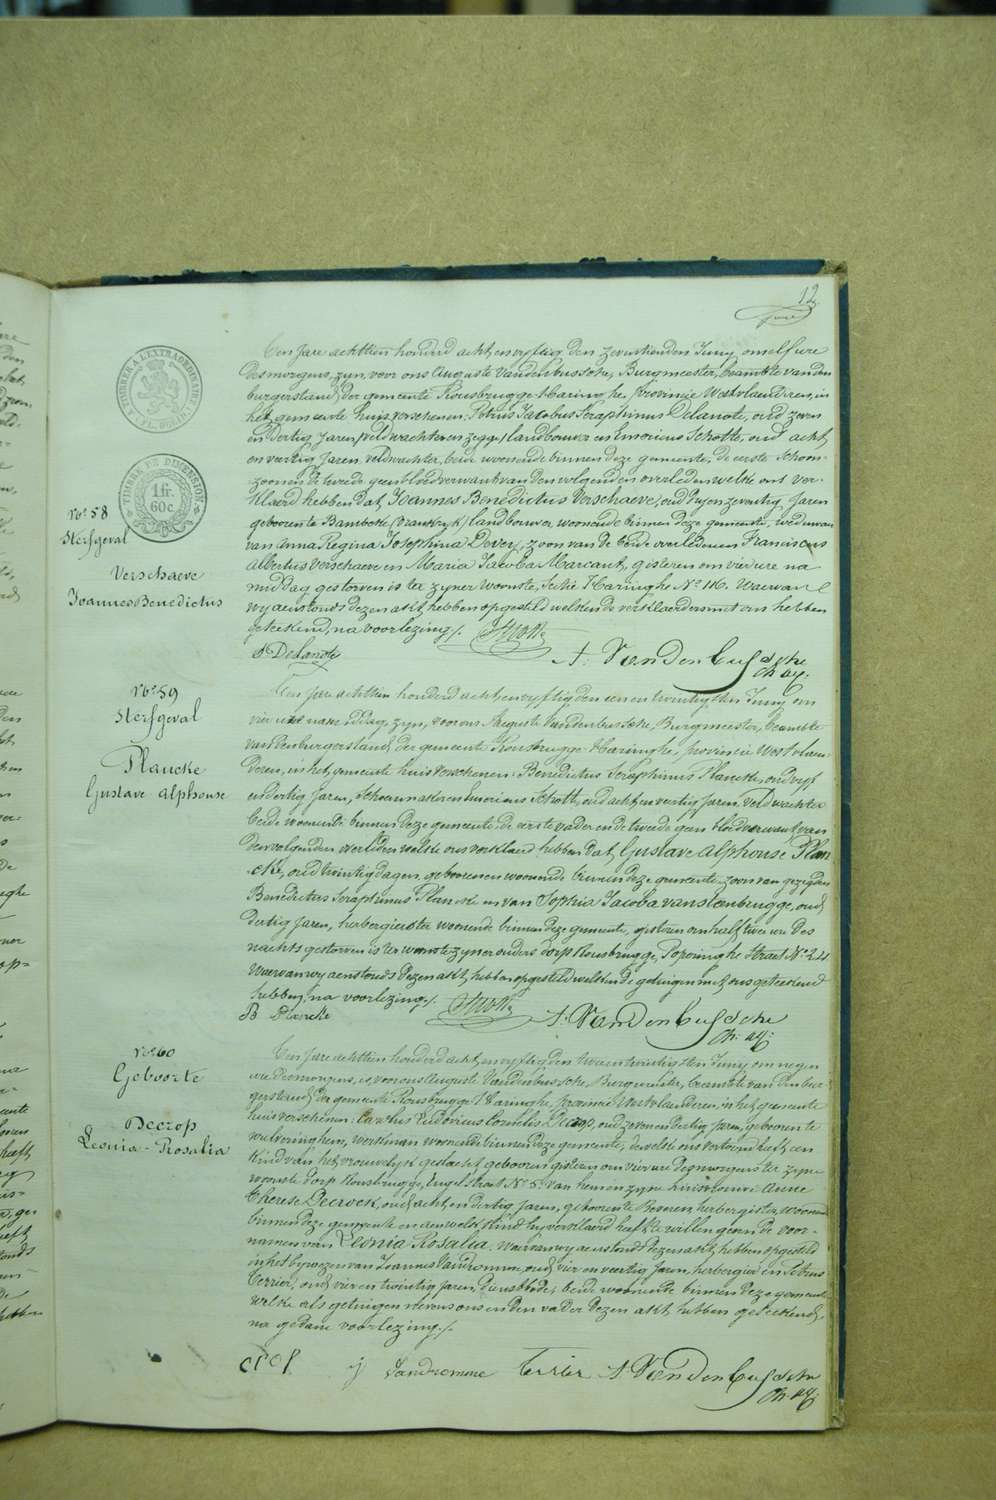 12
TIMBRE A L'EXTRAORDINAIRE
TIMBRE DE DIMENSION
1 fr.
60 c.
N° 58
Sterfgeval
Verschaeve
Joannes Benedictus
Den Jare achttien honderd acht en vyftig den zeventienden Juny, om elf ure
des morgens, zyn, voor ons Auguste Vandenbussche, Burgmeester, beambte van den
burgerstand, der gemeente Rousbrugge-Haringhe, provincie Westvlaanderen, in
het gemeente huis verschenen: Petrus Jacobus Seraphinus Delanote, oud zeven
en dertig Jaren, landbouwer en Emericus Schotte, oud acht
en veertig Jaren, veldwachter, beide woonende binnen deze gemeente, de eerste schoon-
zoon en de tweede geen bloedverwant van den volgenden overleden welke ons ver-
klaerd hebben dat, Joannes Benedictus Verschaeve, oud zeventig Jaren
geboren te Bambeke (Frankryk) landbouwer, woonende binnen deze gemeente, weduwaer
van Anna Regina Josephina Devey, zoon van de beide overledenen Franciscus
Albertus Verschaeve en Maria Jacoba Marcant, gisteren om vier ure na
middag gestorven is ter zyner woonste, Sectie Haringhe N° 116. Waervan
wy aenstonds dezen akt hebben opgesteld welken de verklaerders met ons hebben
geteekend, na voorlezing ./.
P Delanote
A. Vandenbussche
N° 59
Sterfgeval
Plancke
Gustave Alphonse
Den Jare achttien honderd acht en vyftig den een en twintigsten Juny, om
vier ure namiddag, zyn, voor ons Auguste Vandenbussche, Burgmeester, beambte
van den burgerstand, der gemeente Rousbrugge-Haringhe, provincie Westvlaen-
deren, in het gemeente huis verschenen: Benedictus Seraphinus Plancke, oud vyf
en dertig Jaren, schoenmaker en Emericus Schotte, oud acht en veertig Jaren, veldwachter
beide woonende binnen deze gemeente, de eerste vader en de tweede geen bloedverwant van
den volgenden overleden welke ons verklaerd hebben dat, Gustave Alphonse Plan
cke, oud twintig dagen, geboren en woonende binnen deze gemeente, zoon van gezegden
Benedictus Seraphinus Plancke en van Sophia Jacoba Vanstenbrugge, oud
dertig Jaren, herbergierster woonende binnen deze gemeente, gisteren om half twee ure des
nachts gestorven is ter woonste zyner ouders dorp Rousbrugge, Poperinghe Straet N° 24
Waervan wy aenstonds dezen akt, hebben opgesteld welken de getuigen met ons geteekend
hebben, na voorlezing ./.
B Plancke
A. Vandenbussche
N° 60
Geboorte
Decrop
Leonia-Rosalia
Den Jare achttien honderd acht en vyftig den twee en twintigsten Juny, om negen
ure des morgens, is, voor ons Auguste Vandenbussche, Burgmeester, beambte van den bur-
gerstand, der gemeente Rousbrugge-Haringhe, provincie Westvlaenderen, in het gemeente
huis verschenen: Carolus Ludovicus Cornelis Decrop, oud zeven en dertig Jaren, geboren te
Wulveringhem, werkman woonende binnen deze gemeente, dewelke ons vertoond heeft een
kind van het vrouwelyk geslacht geboren gisteren om vier ure des morgens ter zyne
woonste dorp Rousbrugge, Engelstraet N° 5. van hem en zyne huisvrouwe Anne
Therese Decrock, oud acht en dertig Jaren, geboren te Beveren herbergierster, woonende
binnen deze gemeente en aen welk kind hy verklaerd heeft te willen geven de voor-
namen van Leonia Rosalia, waervan wy aenstonds dezen akt, hebben opgesteld
in het bywezen van Joannes Vandromme, oud vier en veertig Jaren, herbergier en Petrus
Terrier, oud vier en twintig Jaren, dienstbode, beide woonende binnen deze gemeente
welke als getuigen nevens ons en den vader dezen akt hebben geteekend,
na gedane voorlezing ./.
j Vandromme
Terrier
A. Vandenbussche